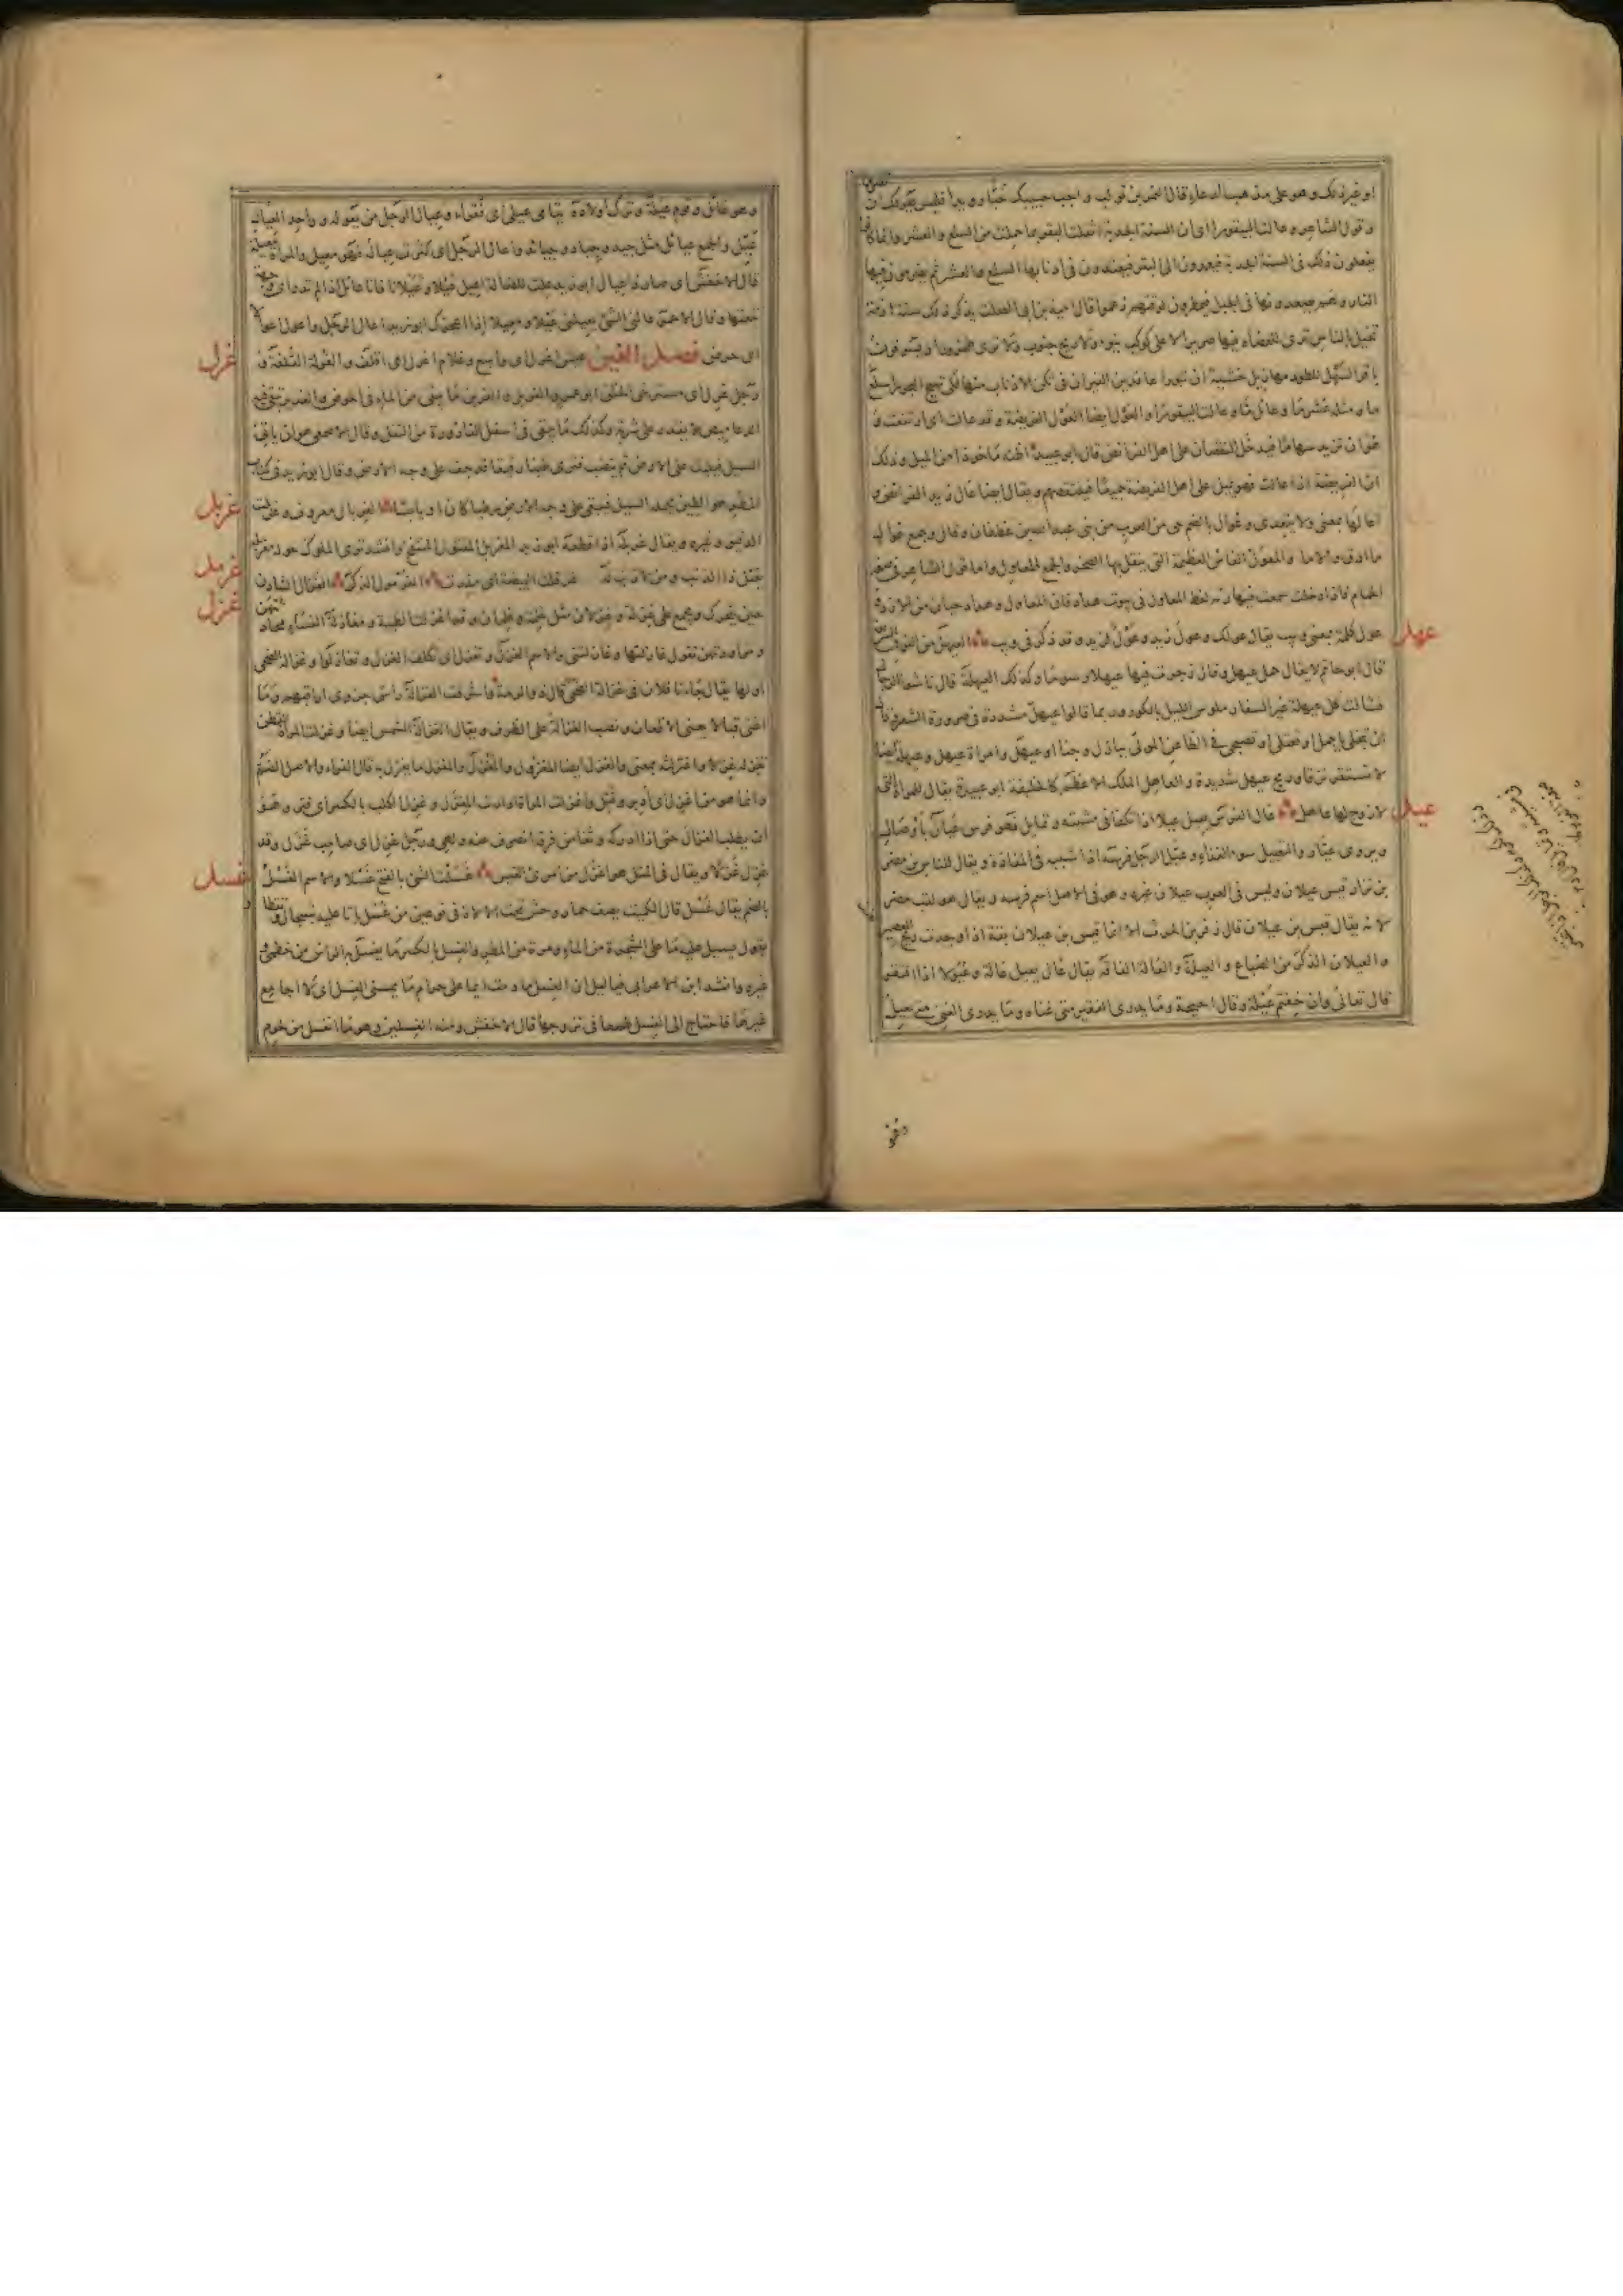 او غير ذلك وهو على مذهب الدعاء قال النمر بن تولب واحبب حبيبك حبا رويدا فليس يعولك ان
تصرما
وقول الشاعر وعالت البيقورا اى ان السنة الجدبة اثقلت البقر بما حملت من السلع والعشر وانما كانوا
يفعلون ذلك فى السنة الجدبة فيعمدون الى البقر فيعقدون فى اذنابها السلع والعشر ثم يضرمون فيها
النار وهم يصعدونها فى الجبل فيمطرون لوقتهم زعموا قال امية بن ابى الصلت يذكر ذلك سنة ازمة
تخيل بالناس ترى للعضاه فيها صريرا لا على كوكب ينوء ولا ريح جنوب ولا ترى طخرورا ويسوقون
باقر السهل للطود مهازيل خشية ان تبورا عاقدين النيران فى ثكن الاذناب منها لكى تهيج البحورا سلع
ما ومثله عشر ما وعائل ما وعالت البيقورا والعول ايضا عول الفريضة وقد عالت اى ارتفعت و
هو ان تزيد سهاما فيدخل النقصان على اهل الفرائض قال ابو عبيد اظنه ماخوذا من الميل وذلك
ان الفريضة اذا عالت فهى تميل على اهل الفريضة جميعا فتنقصهم ويقال ايضا عال زيد الفرائض و
اعالها بمعنى ولا يتعدى وعوال بالضم حى من العرب من بنى عبد الله بن غطفان وقال وجمع عوال
والمعول الفاس العظيمة التى ينقر بها الصخر والجمع المعاول واما قول الشاعر فى صفة
الحمام فاذا دخلت سمعت فيها رنة لغط المعاول فى بيوت هداد فان المعاول وهداد حيان من الازد و
عول كلمة بمعنى ويب يقال عولك وعول زيد وعول لزيد وقد ذكر فى ويب العيهل من النوق السريعة
عهل
قال ابو حاتم لا يقال جمل عيهل وقال زجرت فيها عيهلا رسوما وكذلك العيهلة قال ناشوا الرحال
فشالت كل عيهلة عبر السفار ملوس الليل بالكور وربما قالوا عيهل مشددة فى ضرورة الشعر قال
ان تبخلى يا جمل او تعتلى او تصبحى فى الظاعن المولى ببازل وجناء او عيهل وامراة عيهل وعيهلة ايضا
لا تستقر نزقا وريح عيهل شديدة والعاهل الملك الاعظم كالخليفة ابو عبيدة يقال للمراة التى
لا زوج لها عاهل عال الفرس يعيل عيلا اذا تكفا فى مشيته وتمايل فهو فرس عيال باوصاله
عيل
ويروى عيار والتعييل سوء الغذاء وعيل الرجل فرسه اذا سيبه فى المفازة ويقال للناس بن مضر
بن نزار قيس عيلان وليس فى العرب عيلان غيره وهو فى الاصل اسم فرسه ويقال هو لقب مضر
لانه يقال قيس بن عيلان قال زفر بن الحرث الا انما قيس بن عيلان بقة اذا وجدت ريح العصير
والعيلان الذكر من الضباع والعيلة والعالة الفاقة يقال عال يعيل عيلة وعيولا اذا افتقر
قال تعالى وان خفتم عيلة وقال احيحة وما يدرى الفقير متى غناه وما يدرى الغنى متى يعيل
وهو
وهو عائل وقوم عيلة وترك اولاده يتامى عيلى اى فقراء وعيال الرجل من يعوله وواحد العيال
عيل والجمع عيائل مثل جيد وجياد وجيائد واعال الرجل اى كثرت عياله فهو معيل والمراة معيلة
قال الاخفش اى صار ذا عيال ابو زيد علت للضالة اعيل عيلا وعيلانا فانا عائل اذا لم تدر اى وجهة
تبغيها وقال الاحمر عالنى الشئ يعيلنى عيلا ومعيلا اذا اعجزك ابو زيد اعال الرجل واعول اعوالا
اى حرص فصل الغين عيش اغرل اى واسع وغلام اغرل اى اقلف والغرلة القلفة و
غرل
رجل غرل اى مسترخى الخلق ابو عمرو الغريل والغرين ما يبقى من الماء فى الحوض والغدير تبقى فيه
الدعاميص لا يقدر على شربه وكذلك ما يبقى فى اسفل القارورة من الثفل وقال الاصمعى هو ان ياتى
السيل فيلبث على الارض ثم ينضب فترى طينا رقيقا قد جف على وجه الارض وقال ابو زيد فى كتاب
المطر هو الطين يحمله السيل فيبقى على وجه الارض رطبا كان او يابسا الغربال معروف وغربلت
غربل
الدقيق وغيره ويقال غربله اذا قطعه ابو زيد المغربل المقتول المنتفخ وانشد ترى الملوك حوله مغربله
يقتل ذا الذنب ومن لا ذنب له غرقلت البيضة اى مذرت الغرمول الذكر الغزال الشادن
غرمل
غزل
حين يتحرك ويجمع على غزلة وغزلان مثل غلمة وغلمان وقد اغزلت الظبية ومغازلة النساء محادثتهن
ومراودتهن تقول غازلتها وغازلتنى والاسم الغزل وتغزل اى تكلف الغزل وتغازلوا وغزالة الضحى
اولها يقال جاءنا فلان فى غزالة الضحى قال ذو الرمة فاشرفت الغزالة راس حزوى اراقبهم وما
اغنى قبالا يعنى الاظعان ونصب الغزالة على الظرف ويقال الغزالة الشمس ايضا وغزلت المراة القطن
تغزله غزلا واغتزلته بمعنى والغزل ايضا المغزول والمغزل والمغزل ما يغزل به قال الفراء والاصل الضم
وانما هو من اغزل اى ادير وفتل واغزلت المراة ادارت المغزل وغزل الكلب بالكسر اى فتر وهو
ان يطلب الغزال حتى اذا ادركه وثغا من فرقه انصرف عنه ولهى ورجل غزل اى صاحب غزل وقد
غزل غزلا ويقال فى المثل هو اغزل من امرئ القيس غسلت الشئ بالفتح غسلا والاسم الغسل
غسل
بالضم يقال غسل قال الكميت يصف حمار وحش تحت الالاءة فى نوعين من غسل باتا عليه بتسجال وتقطار
يقول يسيل عليه ما على الشجرة من الماء ومرة من المطر والغسل بالكسر ما يغسل به الراس من خطمى و
غيره وانشد ابن الاعرابى فيا ليل ان الغسل ما دمت ايما على حرام ما يمسنى الغسل اى لا اجامع
غيرها فاحتاج الى الغسل طمعا فى تزوجها قال الاخفش ومنه الغسلين وهو ما انغسل من لحوم